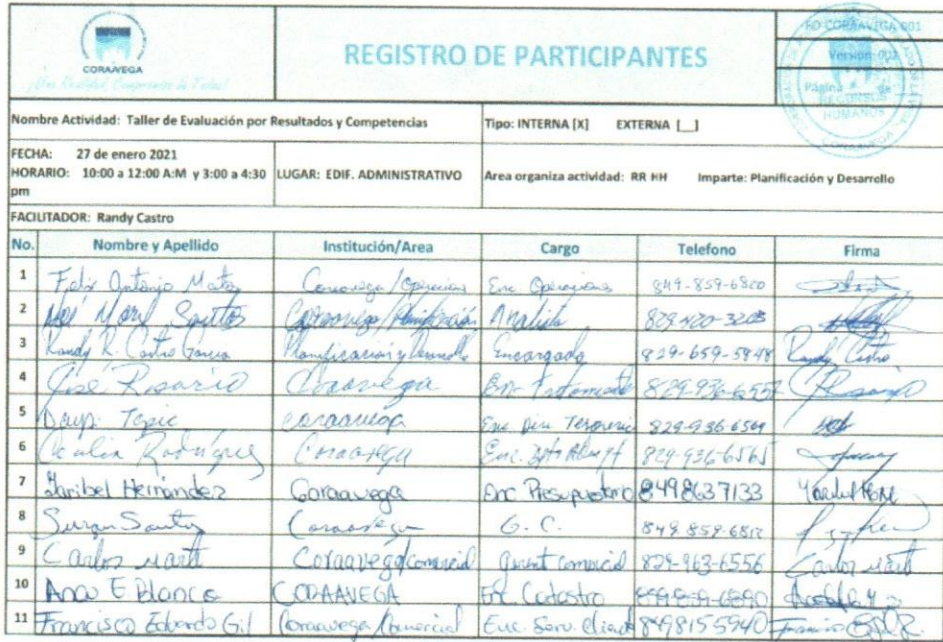 CORAAVEGA
REGISTRO DE PARTICIPANTES
RD-CORAAVEGA-001
Version: 001
Página de
RECURSOS
HUMANOS
CORAAVEGA
Nombre Actividad: Taller de Evaluación por Resultados y Competencias
Tipo: INTERNA [X] EXTERNA [__]
FECHA: 27 de enero 2021
HORARIO: 10:00 a 12:00 A:M y 3:00 a 4:30 pm
LUGAR: EDIF. ADMINISTRATIVO
Area organiza actividad: RR HH Imparte: Planificación y Desarrollo
FACILITADOR: Randy Castro
No. Nombre y Apellido Institución/Area Cargo Telefono Firma
1 Felix Antonio Matos Coraavega/Operaciones Enc. Operaciones 849-859-6820
2 Santos Coraavega/Planificación Analista 829-420-3203
3 Randy R. Castro Garcia Planificacion y Desarrollo Encargado 829-659-5848 Randy Castro
4 José Rosario Coraavega 829-936-6557 Rosario
5 Coraavega 829-936-6569
6 Rodriguez Coraavega 829-936-6565
7 Maribel Hernandez Coraavega Enc. Presupuestario 8498637133
8 Susan Santos Coraavega G. C. 849 859-6812
9 Carlos Marti Coraavega/Comercial Gerent comercial 829-963-6556 Carlos Marti
10 Ana E Blanco CORAAVEGA Enc. Catastro 849-859-6890
11 Francisco Eduardo Gil Coraavega/Comercial Enc. Serv. Cliente 8498155940